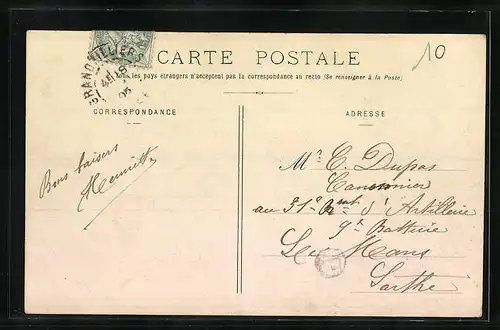 CARTE POSTALE
10
Tous les pays étrangers n'acceptent pas la correspondance au recto (Se renseigner à la Poste)
GRANDVILLIERS
CORRESPONDANCE
ADRESSE
Bons baisers
Henriette
Mr C. Dupas
Canonnier
au 31e Rgt d'Artillerie
9e Batterie
Le Mans
Sarthe